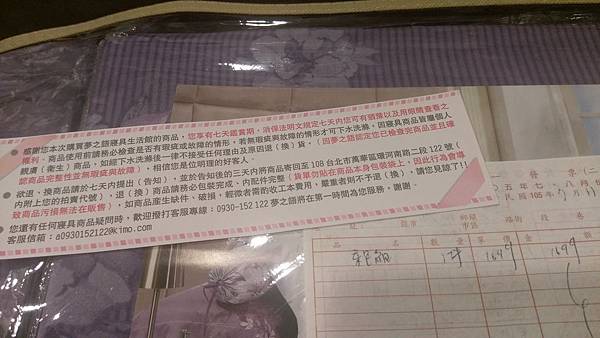 感謝您本次購買夢之語寢具生活館的商品,您享有七天鑑賞期,消保法明文規定七天內您可有猶豫以及用眼睛查看之
權利,商品使用前請務必檢查是否有瑕疵或故障的情形,若無瑕疵與故障的情形才可下水洗滌。因寢具商品皆屬個人
親膚(衛生)商品,如經下水洗滌後一律不接受任何提出及原因退(換)貨,(因夢之語認定您已檢查完商品並且確
認商品完整性並無瑕疵與故障),相信您是位明理的好客人。
欲退、換商品請於七天內提出(告知),並於告知後的三天內將商品寄回至108台北市萬華區環河南路二段122號(
內附上您的拍賣代號),退(換)商品請務必包裝完成,內配件完整(貨單勿貼在商品本身包裝袋上,因此行為會導
致商品污損無法在販售),如商品產生缺件、破損,輕微者需酌收工本費用,嚴重者則不予退(換),請您見諒了!!
您還有任何寢具商品疑問時,歡迎撥打客服專線:0930-152122夢之語將在第一時間為您服務,謝謝。
客服信箱:a0930152122@kimo.com
發 票 (二
〇五年七、八月份
民國105年
品 名 數量 單價 金額
1649 1649